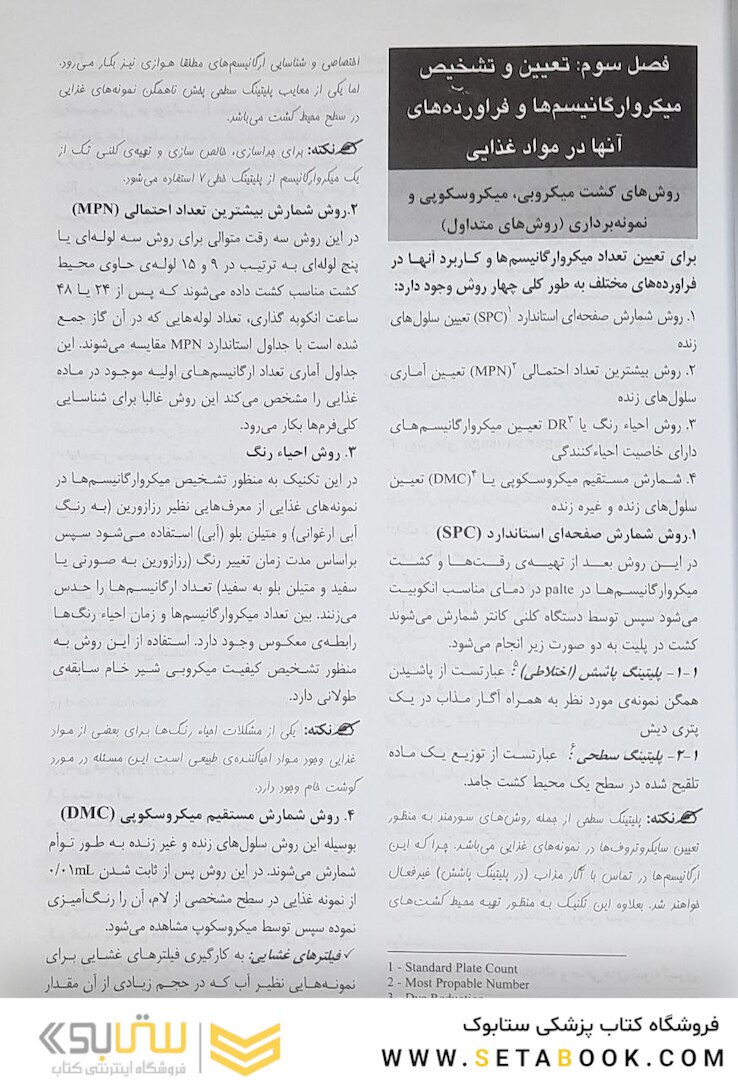 فصل سوم: تعیین و تشخیص
میکروارگانیسم‌ها و فراورده‌های
آنها در مواد غذایی
روش‌های کشت میکروبی، میکروسکوپی و
نمونه‌برداری (روش‌های متداول)
برای تعیین تعداد میکروارگانیسم‌ها و کاربرد آنها در
فراورده‌های مختلف به طور کلی چهار روش وجود دارد:
۱. روش شمارش صفحه‌ای استاندارد ۱(SPC) تعیین سلول‌های
زنده
۲. روش بیشترین تعداد احتمالی ۲(MPN) تعیین آماری
سلول‌های زنده
۳. روش احیاء رنگ یا DR۳ تعیین میکروارگانیسم‌های
دارای خاصیت احیاءکنندگی
۴. شمارش مستقیم میکروسکوپی یا ۴(DMC) تعیین
سلول‌های زنده و غیره زنده
۱.روش شمارش صفحه‌ای استاندارد (SPC)
در این روش بعد از تهیه‌ی رقت‌ها و کشت
میکروارگانیسم‌ها در palte در دمای مناسب انکوبیت
می‌شود سپس توسط دستگاه کلنی کانتر شمارش می‌شوند
کشت در پلیت به دو صورت زیر انجام می‌شود.
۱-۱- پلیتینگ پاشش (اختلاطی)۵: عبارتست از پاشیدن
همگن نمونه‌ی مورد نظر به همراه آگار مذاب در یک
پتری دیش
۱-۲- پلیتینگ سطحی۶: عبارتست از توزیع یک ماده
تلقیح شده در سطح یک محیط کشت جامد.
نکته: پلیتینگ سطحی از جمله روش‌های سودمند به منظور
تعیین سایکروتروف‌ها در نمونه‌های غذایی می‌باشد. چرا که این
ارگانیسم‌ها در تماس با آگار مذاب (در پلیتینگ پاشش) غیرفعال
خواهند شد. بعلاوه این تکنیک به منظور تهیه محیط کشت‌های
1 - Standard Plate Count
2 - Most Propable Number
اختصاصی و شناسایی ارگانیسم‌های مطلقا هوازی نیز بکار می‌رود.
اما یکی از معایب پلیتینگ سطحی پخش ناهمگن نمونه‌های غذایی
در سطح محیط کشت می‌باشد.
نکته: برای جداسازی، خالص سازی و تهیه‌ی کلنی تک از
یک میکروارگانیسم از پلیتینگ خطی۷ استفاده می‌شود.
۲.روش شمارش بیشترین تعداد احتمالی (MPN)
در این روش سه رقت متوالی برای روش سه لوله‌ای یا
پنج لوله‌ای به ترتیب در ۹ و ۱۵ لوله‌ی حاوی محیط
کشت مناسب کشت داده می‌شوند که پس از ۲۴ یا ۴۸
ساعت انکوبه گذاری، تعداد لوله‌هایی که در آن گاز جمع
شده است با جداول استاندارد MPN مقایسه می‌شوند. این
جداول آماری تعداد ارگانیسم‌های اولیه موجود در ماده
غذایی را مشخص می‌کند این روش غالبا برای شناسایی
کلی‌فرم‌ها بکار می‌رود.
۳. روش احیاء رنگ
در این تکنیک به منظور تشخیص میکروارگانیسم‌ها در
نمونه‌های غذایی از معرف‌هایی نظیر رزازورین (به رنگ
آبی ارغوانی) و متیلن بلو (آبی) استفاده می‌شود سپس
براساس مدت زمان تغییر رنگ (رزازورین به صورتی یا
سفید و متیلن بلو به سفید) تعداد ارگانیسم‌ها را حدس
می‌زنند. بین تعداد میکروارگانیسم‌ها و زمان احیاء رنگ‌ها
رابطه‌ی معکوس وجود دارد. استفاده از این روش به
منظور تشخیص کیفیت میکروبی شیر خام سابقه‌ی
طولانی دارد.
نکته: یکی از مشکلات احیاء رنگ‌ها برای بعضی از مواد
غذایی وجود مواد احیاکننده‌ی طبیعی است این مسئله در مورد
گوشت خام وجود دارد.
۴. روش شمارش مستقیم میکروسکوپی (DMC)
بوسیله این روش سلول‌های زنده و غیر زنده به طور توأم
شمارش می‌شوند. در این روش پس از ثابت شدن ۰/۰۱mL
از نمونه غذایی در سطح مشخصی از لام، آن را رنگ‌آمیزی
نموده سپس توسط میکروسکوپ مشاهده می‌شود.
✓فیلترهای غشایی: به کارگیری فیلترهای غشایی برای
نمونه‌هایی نظیر آب که در حجم زیادی از آن مقدار
فروشگاه کتاب پزشکی ستابوک
WWW.SETABOOK.COM
ستابوک
فروشگاه اینترنتی کتاب